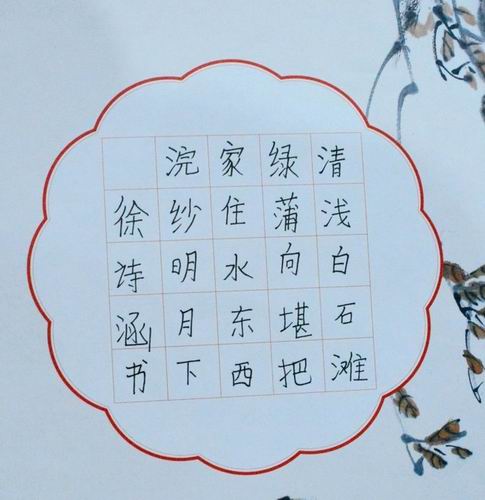 清浅白石滩
绿蒲向堪把
家住水东西
浣纱明月下
徐诗涵书